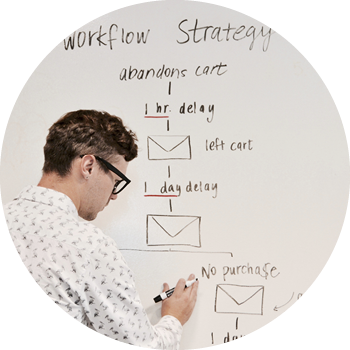 workflow Strategy
abandons cart
1 hr. delay
left cart
1 day delay
No purchase
1 day